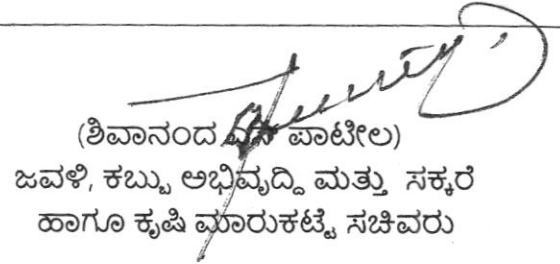 (ಶಿವಾನಂದ ಎಸ್ ಪಾಟೀಲ)
ಜವಳಿ, ಕಬ್ಬು ಅಭಿವೃದ್ದಿ ಮತ್ತು ಸಕ್ಕರೆ
ಹಾಗೂ ಕೃಷಿ ಮಾರುಕಟ್ಟೆ ಸಚಿವರು